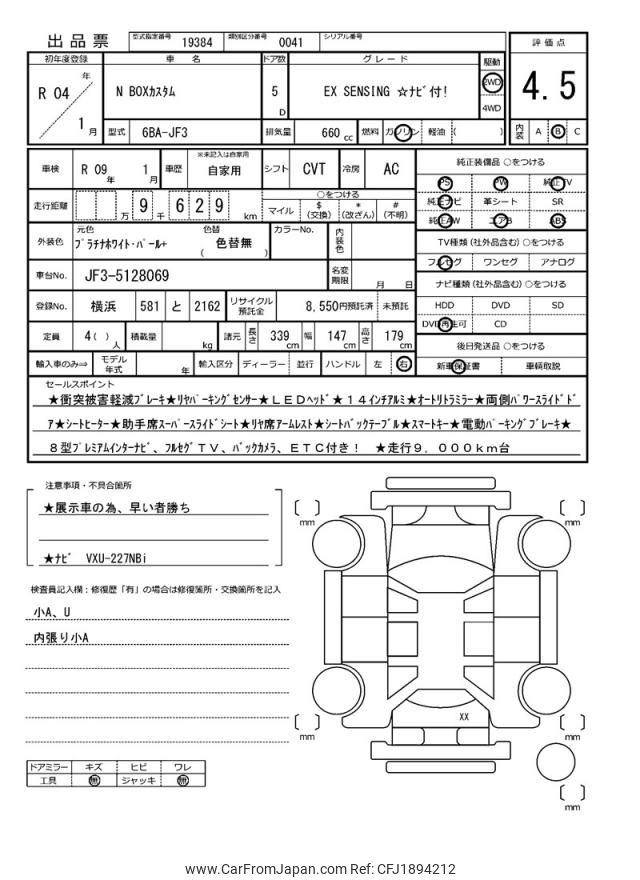 出品票 型式指定番号 19384 類別区分番号 0041 シリアル番号
初年度登録 車名 ドア数 グレード 駆動 評価点
R 04 年 1 月 N BOXカスタム 5 D EX SENSING ☆ﾅﾋﾞ付! 2WD 4WD 4.5
型式 6BA-JF3 排気量 660 cc 燃料 ガソリン 軽油 ( ) 内装 A B C
車検 R 09 年 1 月 車歴 ※未記入は自家用 自家用 シフト CVT 冷房 AC 純正装備品 ○をつける
PS PW 純正TV
走行距離 万 9 千 6 2 9 km ○をつける
マイル $(交換) *(改ざん) #(不明)
純正ナビ 革シート SR
純正AW エアB ABS
外装色 元色 ﾌﾟﾗﾁﾅﾎﾜｲﾄ･ﾊﾟｰﾙ+ 色替 ( 色替無 ) カラーNo. 内装色
TV種類 (社外品含む) ○をつける
フルセグ ワンセグ アナログ
車台No. JF3-5128069 名変期限 月 日
ナビ種類 (社外品含む) ○をつける
登録No. 横浜 581 と 2162 リサイクル預託金 8,550円預託済 未預託
HDD DVD SD
DVD再生可 CD
定員 4( ) 人 積載量 kg 諸元 長さ 339 cm 幅 147 cm 高さ 179 cm
後日発送品 ○をつける
輸入車のみ⇒ モデル年式 年 輸入区分 ディーラー 並行 ハンドル 左 右
新車保証書 車輌取説
セールスポイント
★衝突被害軽減ﾌﾞﾚｰｷ★ﾘﾔﾊﾟｰｷﾝｸﾞｾﾝｻｰ★ＬＥＤﾍｯﾄﾞ★１４インチアルミ★ｵｰﾄﾘﾄﾗﾐﾗｰ★両側ﾊﾟﾜｰｽﾗｲﾄﾞﾄﾞ
ｱ★ｼｰﾄﾋｰﾀｰ★助手席ｽｰﾊﾟｰｽﾗｲﾄﾞｼｰﾄ★ﾘﾔ席ｱｰﾑﾚｽﾄ★ｼｰﾄﾊﾞｯｸﾃｰﾌﾞﾙ★ｽﾏｰﾄｷｰ★電動ﾊﾟｰｷﾝｸﾞﾌﾞﾚｰｷ★
８型ﾌﾟﾚﾐｱﾑｲﾝﾀｰﾅﾋﾞ、ﾌﾙｾｸﾞＴＶ、ﾊﾞｯｸｶﾒﾗ、ＥＴＣ付き！ ★走行９，０００ｋｍ台
注意事項・不具合箇所
★展示車の為、早い者勝ち
★ﾅﾋﾞ VXU-227NBi
検査員記入欄：修復歴「有」の場合は修復箇所・交換箇所を記入
小A、U
内張り小A
mm
mm
XX
mm
mm
mm
ドアミラー キズ ヒビ ワレ
工具 無 ジャッキ 無
www.CarFromJapan.com Ref: CFJ1894212